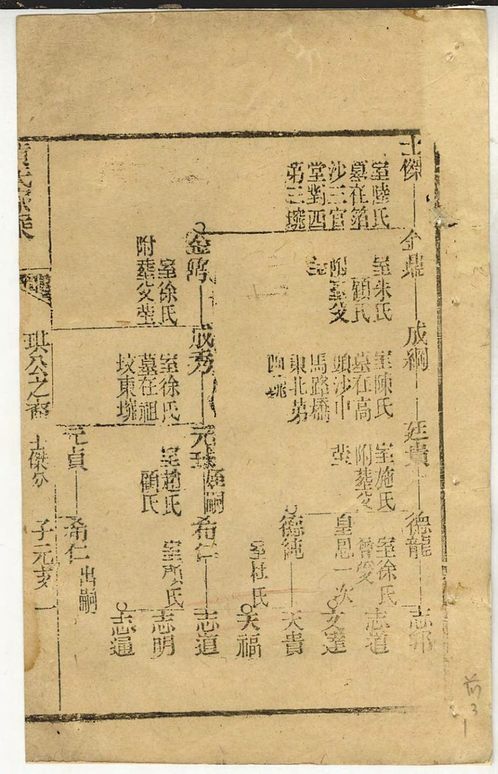 士傑
室陸氏
墓在箔
沙三官
堂對西
第三壠
室朱氏
顧氏
附葬父
塋
成綱
室陳氏
墓在高
頭沙中
馬路橋
東北第
四壠
廷貴
室施氏
附葬父
塋
德龍
室徐氏
曾受
皇恩一次
志邦
志道
文達
德純
室杜氏
天貴
天福
室徐氏
附葬父塋
成秀
室徐氏
墓在祖
墳東壠
嗣
室趙氏
顧氏
希仁
志道
志明
志通
元貞
希仁出嗣
珙公之裔
士傑分
子元亥 一
前
3
1